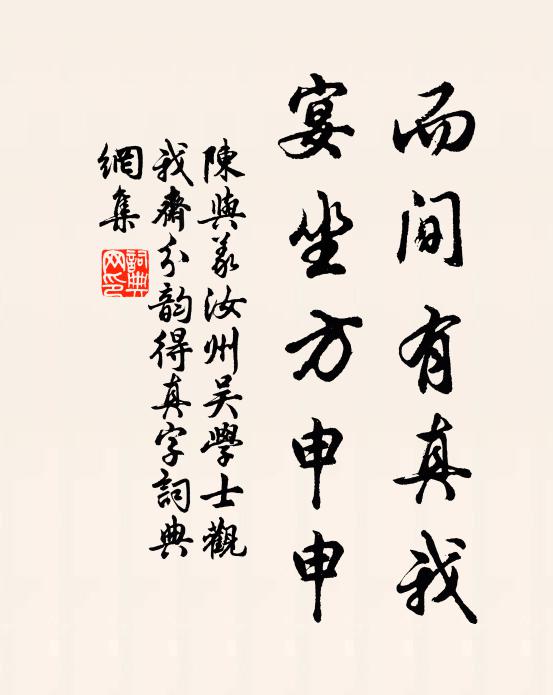 而间有真我
宴坐方申申
陳與義汝州吴學士觀
我齋分韵得真字詞典
網集
詞典
网印